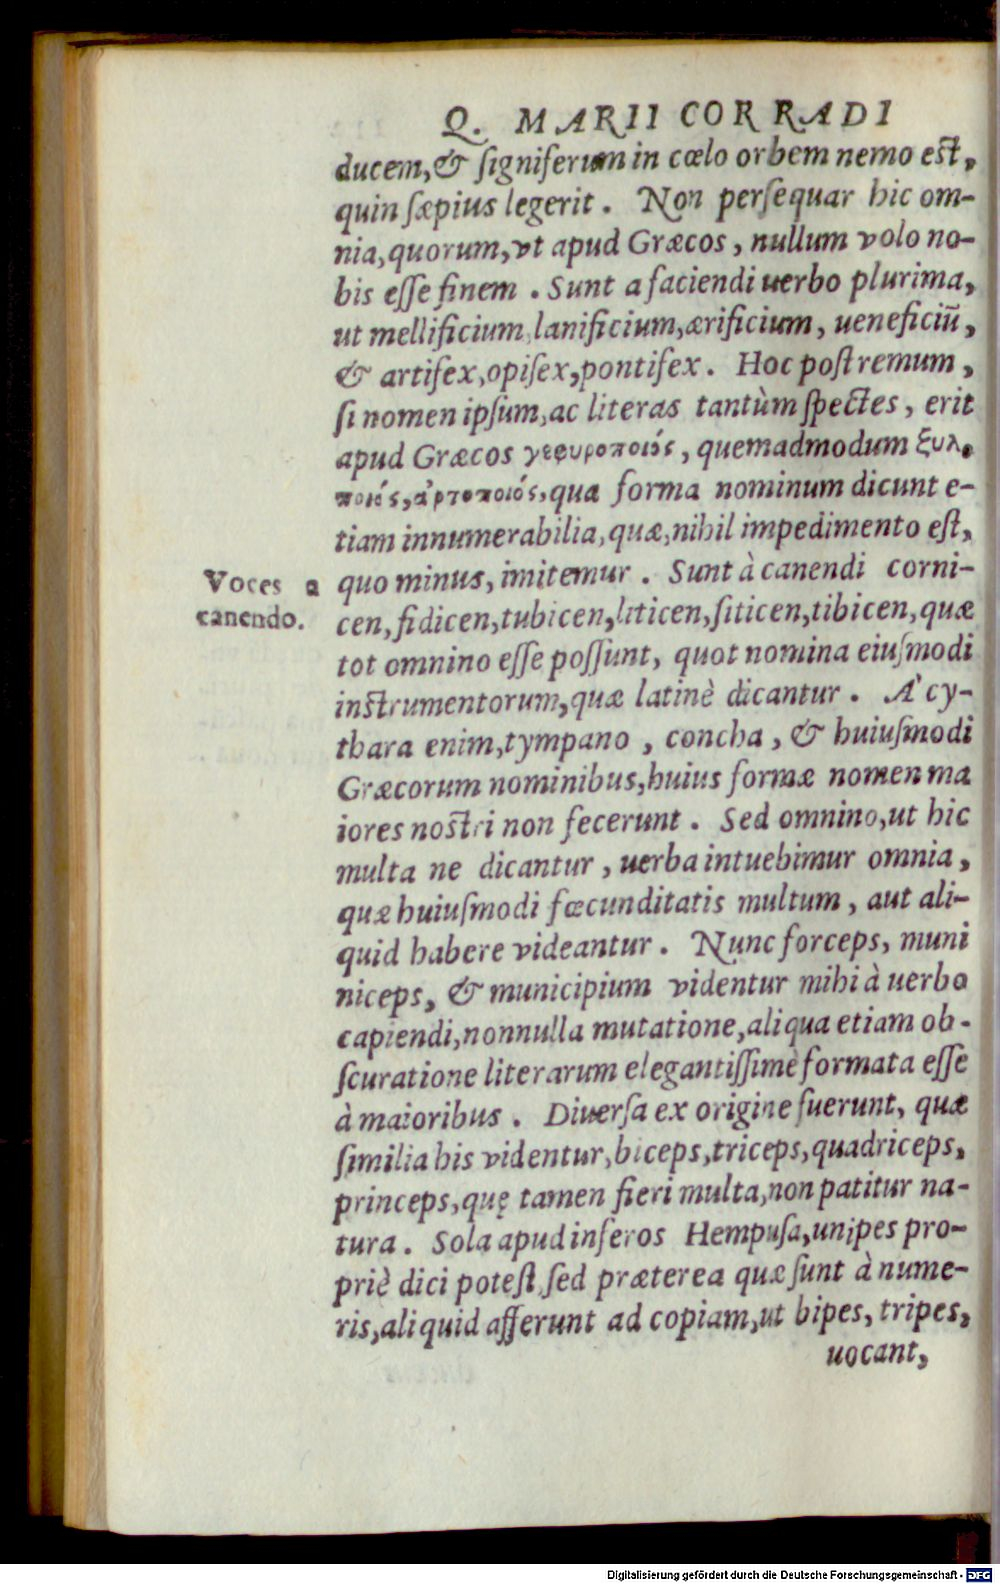 Q. MARII CORRADI
ducem, & signiferum in cœlo orbem nemo est,
quin sæpius legerit. Non persequar hic om-
nia, quorum, vt apud Græcos, nullum volo no-
bis esse finem. Sunt a faciendi uerbo plurima,
ut mellificium, lanificium, ærificium, ueneficiũ,
& artifex, opifex, pontifex. Hoc postremum,
si nomen ipsum, ac literas tantùm spectes, erit
apud Græcos γεφυροποιός, quemadmodum ξυλο
ποιός, ἀρτοποιός, qua forma nominum dicunt e-
tiam innumerabilia, quæ, nihil impedimento est,
Voces a
canendo.
quo minus, imitemur. Sunt à canendi corni-
cen, fidicen, tubicen, liticen, siticen, tibicen, quæ
tot omnino esse possunt, quot nomina eiusmodi
instrumentorum, quæ latinè dicantur. A' cy-
thara enim, tympano, concha, & huiusmodi
Græcorum nominibus, huius formæ nomen ma
iores nostri non fecerunt. Sed omnino, ut hic
multa ne dicantur, uerba intuebimur omnia,
quæ huiusmodi fœcunditatis multum, aut ali-
quid habere videantur. Nunc forceps, muni
niceps, & municipium videntur mihi à uerbo
capiendi, nonnulla mutatione, aliqua etiam ob-
scuratione literarum elegantissimè formata esse
à maioribus. Diuersa ex origine fuerunt, quæ
similia his videntur, biceps, triceps, quadriceps,
princeps, quę tamen fieri multa, non patitur na-
tura. Sola apud inferos Hempusa, unipes pro-
priè dici potest, sed præterea quæ sunt à nume-
ris, aliquid afferunt ad copiam, ut bipes, tripes,
uocant,
Digitalisierung gefördert durch die Deutsche Forschungsgemeinschaft - DFG